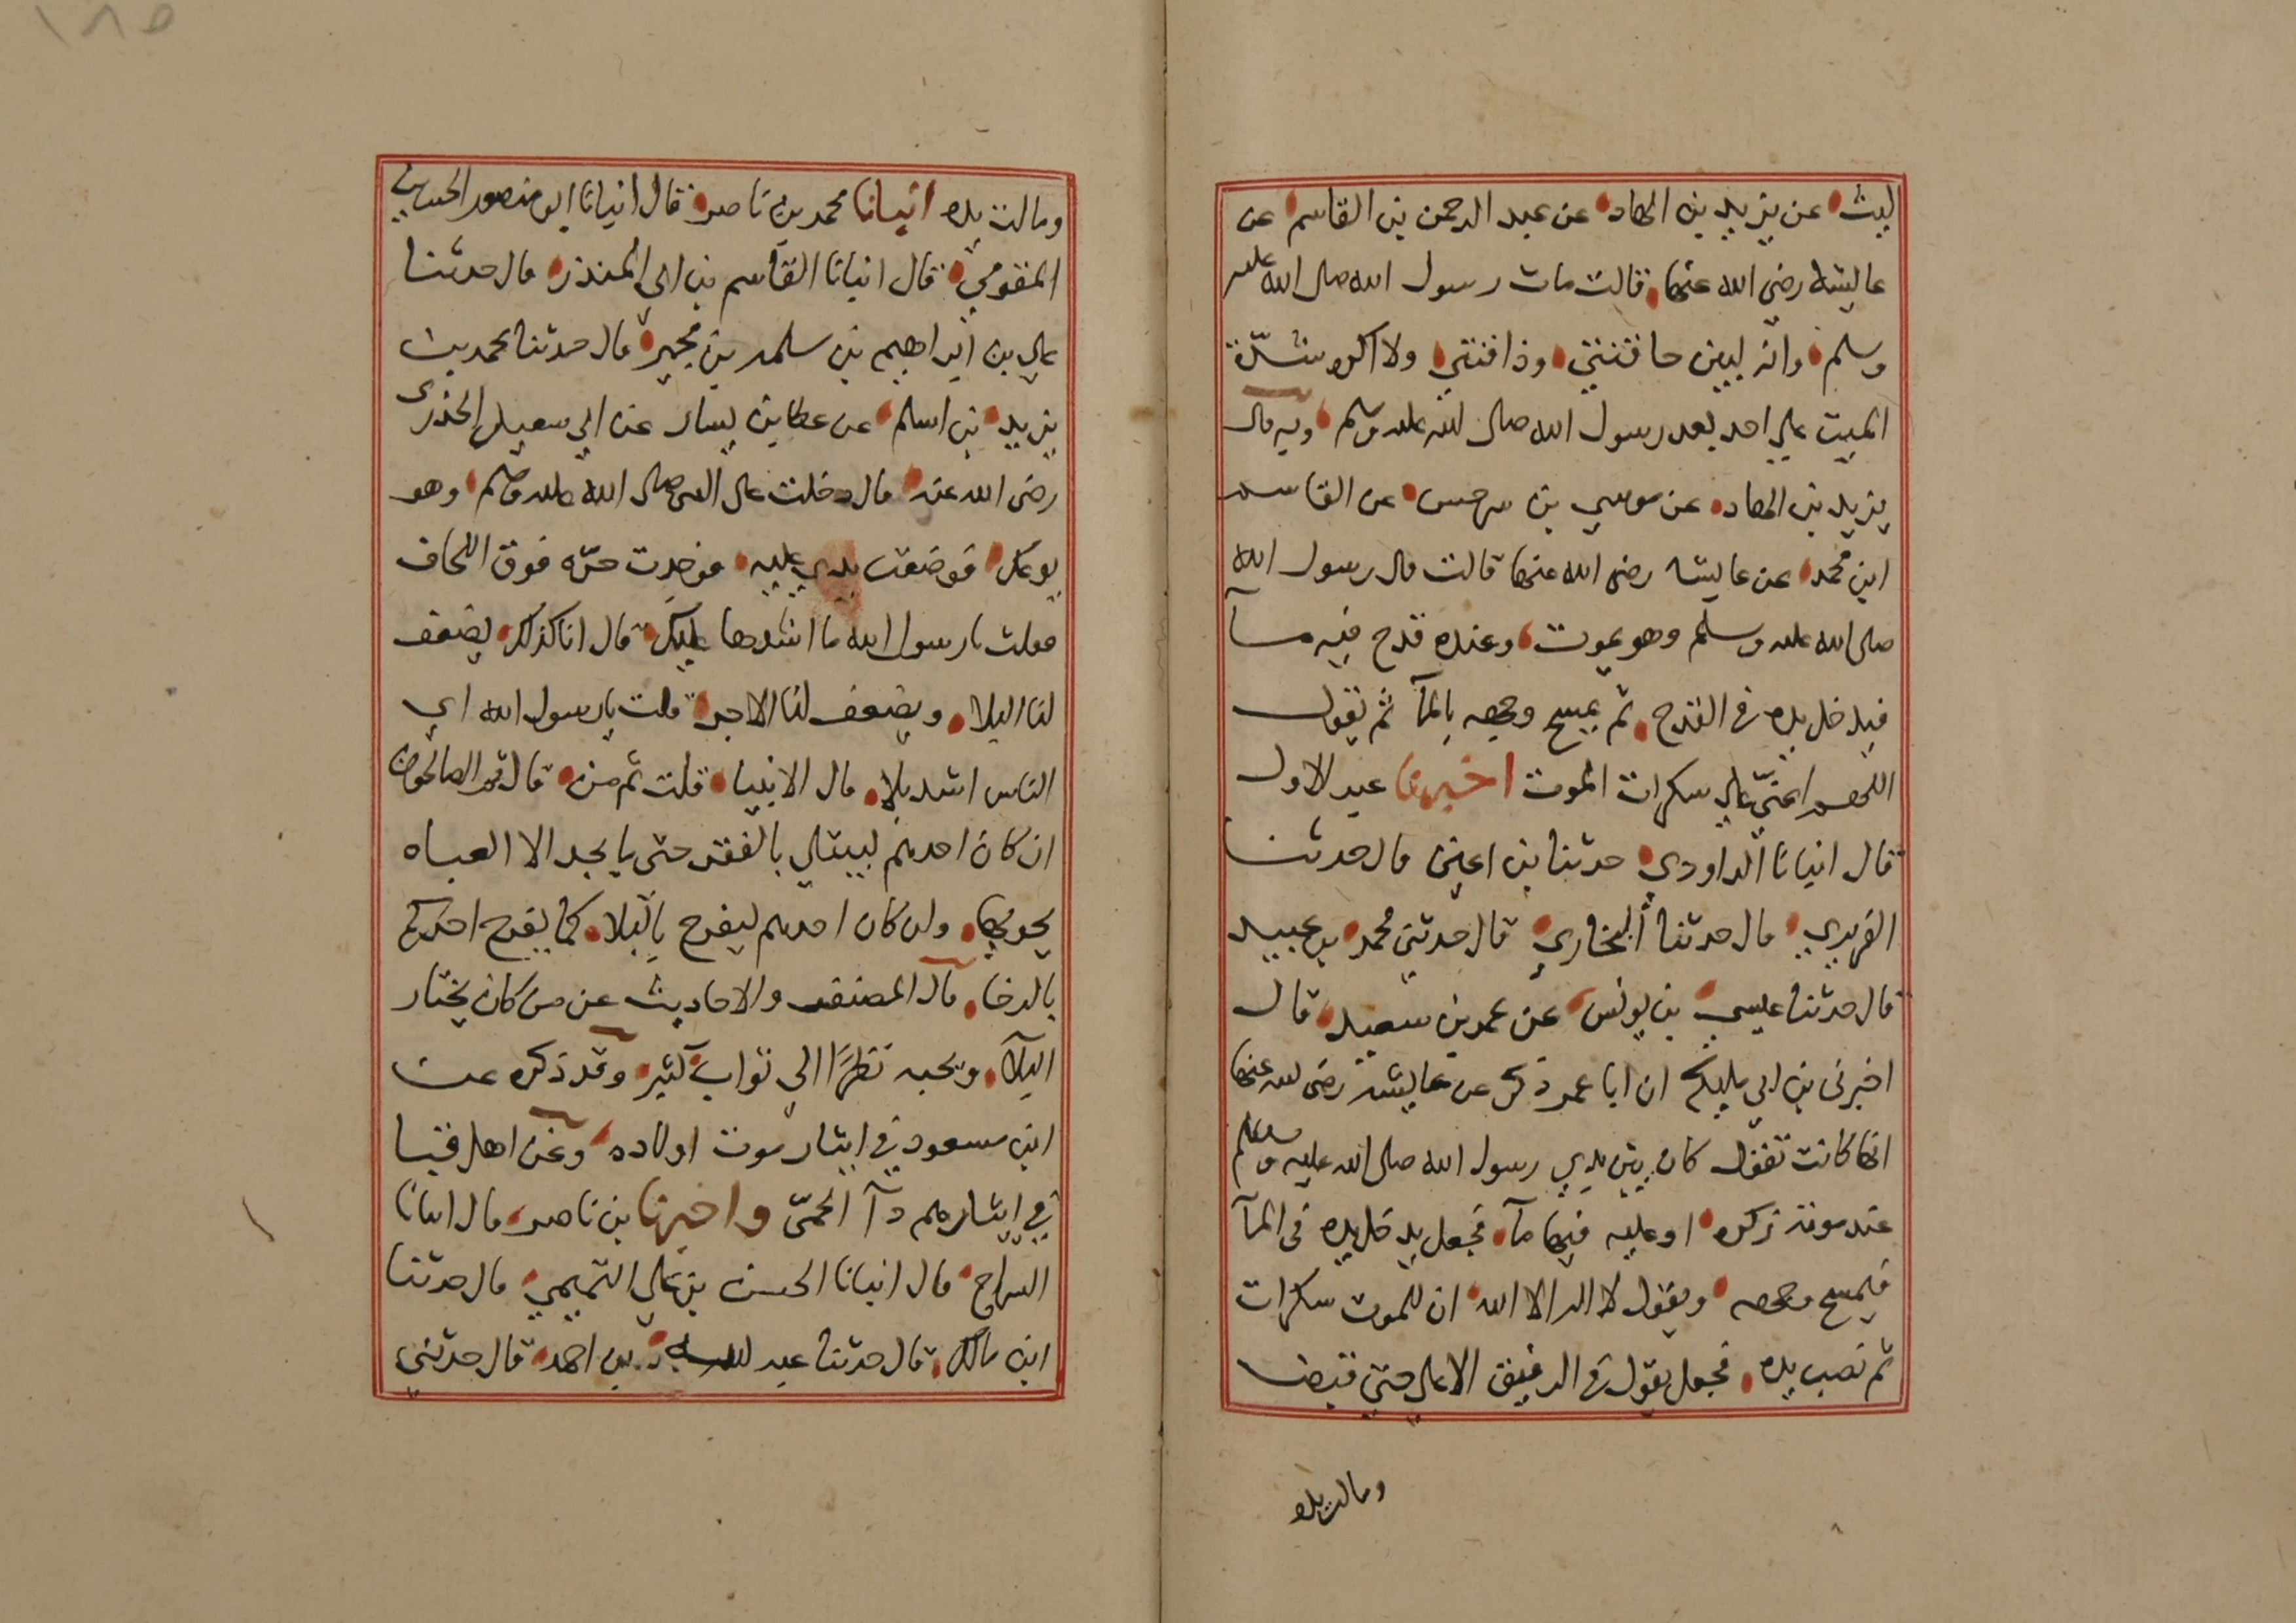 ليث عن يزيد بن الهاد عن عبد الرحمن بن القاسم عن
عايشه رضي الله عنها قالت مات رسول الله صلى الله عليه
وسلم وانه لبين حاقنتي وذاقنتي ولا اكره شدّة
الميت علي احد بعد رسول الله صلى الله عليه وسلم وبه قال
يزيد بن الهاد عن موسي بن سرجس عن القاسم
ابن محمد عن عايشه رضي الله عنها قالت قال رسول الله
صلى الله عليه وسلم وهو يموت وعنده قدح فيه مآ
فيدخل يده في القدح ثم يمسح وجهه بالمآ ثم يقول
اللهم اعنّي علي سكرات الموت اخبرنا عبد الاول
قال انبانا الداودي حدثنا بن اعين قال حدثنا
الفربري قال حدثنا البخاري قال حدثني محمد بن عبيد
قال حدثنا عيسي بن يونس عن عمر بن سعيد قال
اخبرني بن ابي مليكه ان ابا عمرو ذكر عن عايشه رضي الله عنها
انها كانت تقول كان بين يدي رسول الله صلى الله عليه وسلم
عند موته زكوه او علبه فيها مآ فجعل يدخل يده في المآ
فيمسح وجهه ويقول لا اله الا الله ان للموت سكرات
ثم نصب يده فجعل يقول في الرفيق الاعلي حتي قبضا
ومالت يده
١٨٥
ومالت يده انبانا محمد بن ناصر قال انبانا ابو منصور الحسين
المقومي قال انبانا القاسم بن ابي المنذر قال حدثنا
علي بن ابراهيم بن سلمه بن محير قال حدثنا محمد بن
يزيد بن اسلم عن عطا بن يسار عن ابي سعيد الخدري
رضي الله عنه قال دخلت على النبي صلى الله عليه وسلم وهو
يوعك فوضعت يدي عليه فوجدت حرّه فوق اللحاف
فقلت يا رسول الله ما اشدها عليك قال انا كذلك يضعف
لنا البلا ويضعف لنا الاجر قلت يا رسول الله اي
الناس اشد بلا قال الانبيا قلت ثم من قال ثم الصالحون
ان كان احدهم ليبتلي بالفقر حتى ما يجد الا العباه
يحويها وان كان احدهم ليفرح بالبلا كما يفرح احدكم
بالرخا قال المصنف والاحاديث عن من كان يختار
البلآ ويحبه نظرًا الي ثواب كثير وقد ذكره عن
ابن مسعود في ايثار موت اولاده وعن اهل قبا
في ايثارهم دآ الحمّى واخبرنا بن ناصر قال انبانا
السراج قال انبانا الحسن بن علي التميمي قال حدثنا
ابن مالك قال حدثنا عبد الله بن احمد قال حدثني